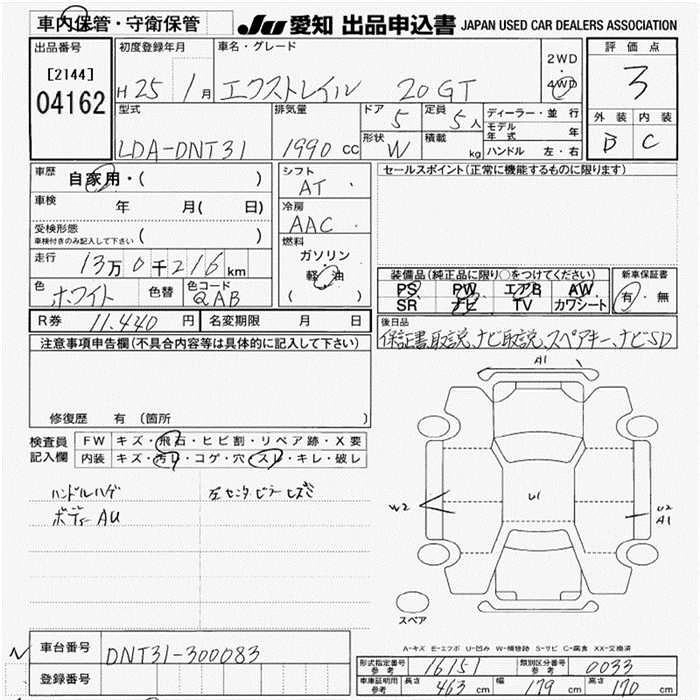 車内保管・守衛保管 JU 愛知 出品申込書 JAPAN USED CAR DEALERS ASSOCIATION
出品番号 初度登録年月 車名・グレード 2WD・4WD 評価点
[2144] 04162 H25 1月 エクストレイル 20GT 3
外装 内装
B C
型式 排気量 ドア 5 定員 5人 ディーラー・並行
モデル年式 年
LDA-DNT31 1990 cc 形状 W 積載 kg ハンドル 左・右
車歴 自家用・( ) シフト AT セールスポイント(正常に機能するものに限ります)
車検 年 月( 日) 冷房 AAC
受検形態 車検付きのみ記入して下さい ( ) 燃料 ガソリン・軽油 ( )
走行 13万0千216km
装備品(純正品に限り○をつけてください) 新車保証書
PS PW エアB AW 有・無
SR ナビ TV カワシート
色 ホワイト 色替 色コード QAB
R券 11,440円 名変期限 月 日
後日品
保証書、取説、ナビ取説、スペアキー、ナビSD
注意事項申告欄(不具合内容等は具体的に記入して下さい)
修復歴 有(箇所 )
検査員記入欄 FW キズ・飛石・ヒビ割・リペア跡・X要
内装 キズ・汚れ・コゲ・穴・スレ・キレ・破レ
ハンドルハゲ 左センターピラーヒズミ
ボディーAU
A1
W2 U1 U2
A1
スペア
A-キズ E-エクボ U-凹み W-補修跡 S-サビ C-腐食 XX-交換済
車台番号 DNT31-300083
登録番号
形式指定番号 参考 16151 類別区分番号 参考 0033
車庫証明用 参考 長さ 463 cm 幅 179 cm 高さ 170 cm